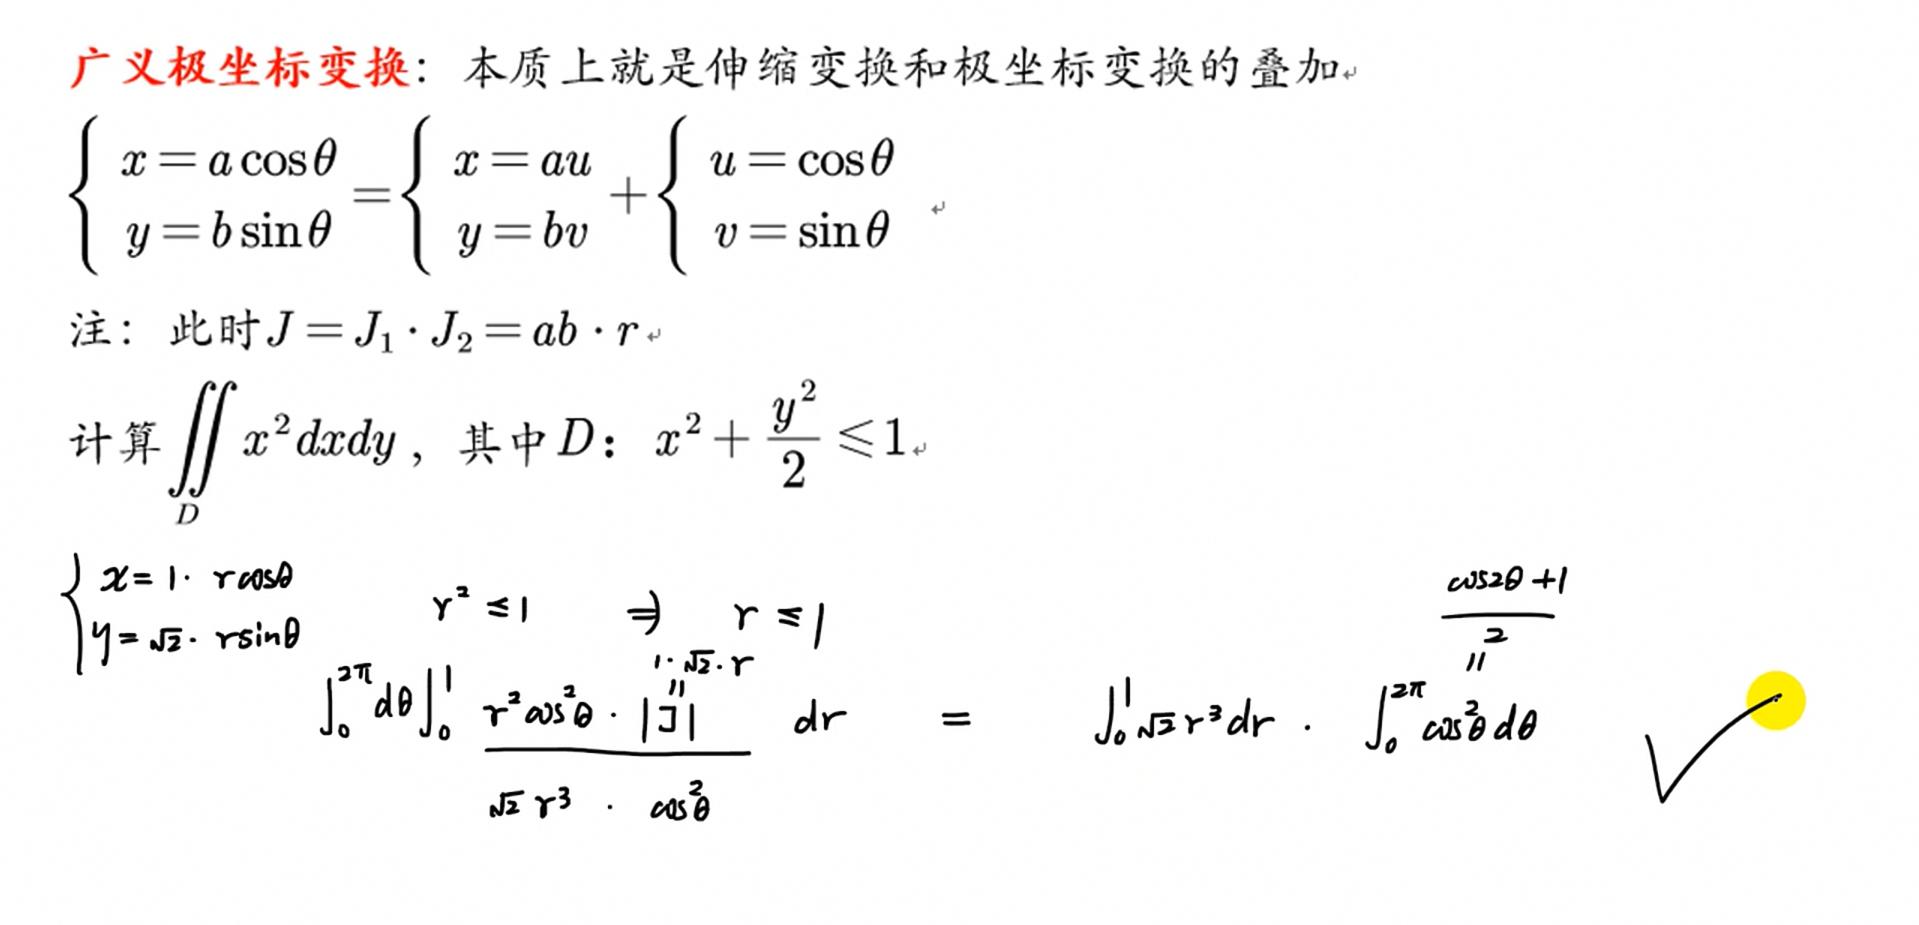 广义极坐标变换：本质上就是伸缩变换和极坐标变换的叠加
{ x = a cosθ, y = b sinθ = { x = au, y = bv + { u = cosθ, v = sinθ
注：此时J = J₁ · J₂ = ab · r
计算∬_D x²dxdy，其中D：x² + y²/2 ⩽ 1
{ x = 1· rcosθ
y = √2 · rsinθ
r² ≤ 1 ⇒ r ≤ 1
1·√2·r
∫₀^2π dθ ∫₀^1 r²cos²θ · |J| dr = ∫₀^1 √2 r³dr · ∫₀^2π cos²θ dθ
(cos2θ+1)/2
√2 r³ · cos²θ